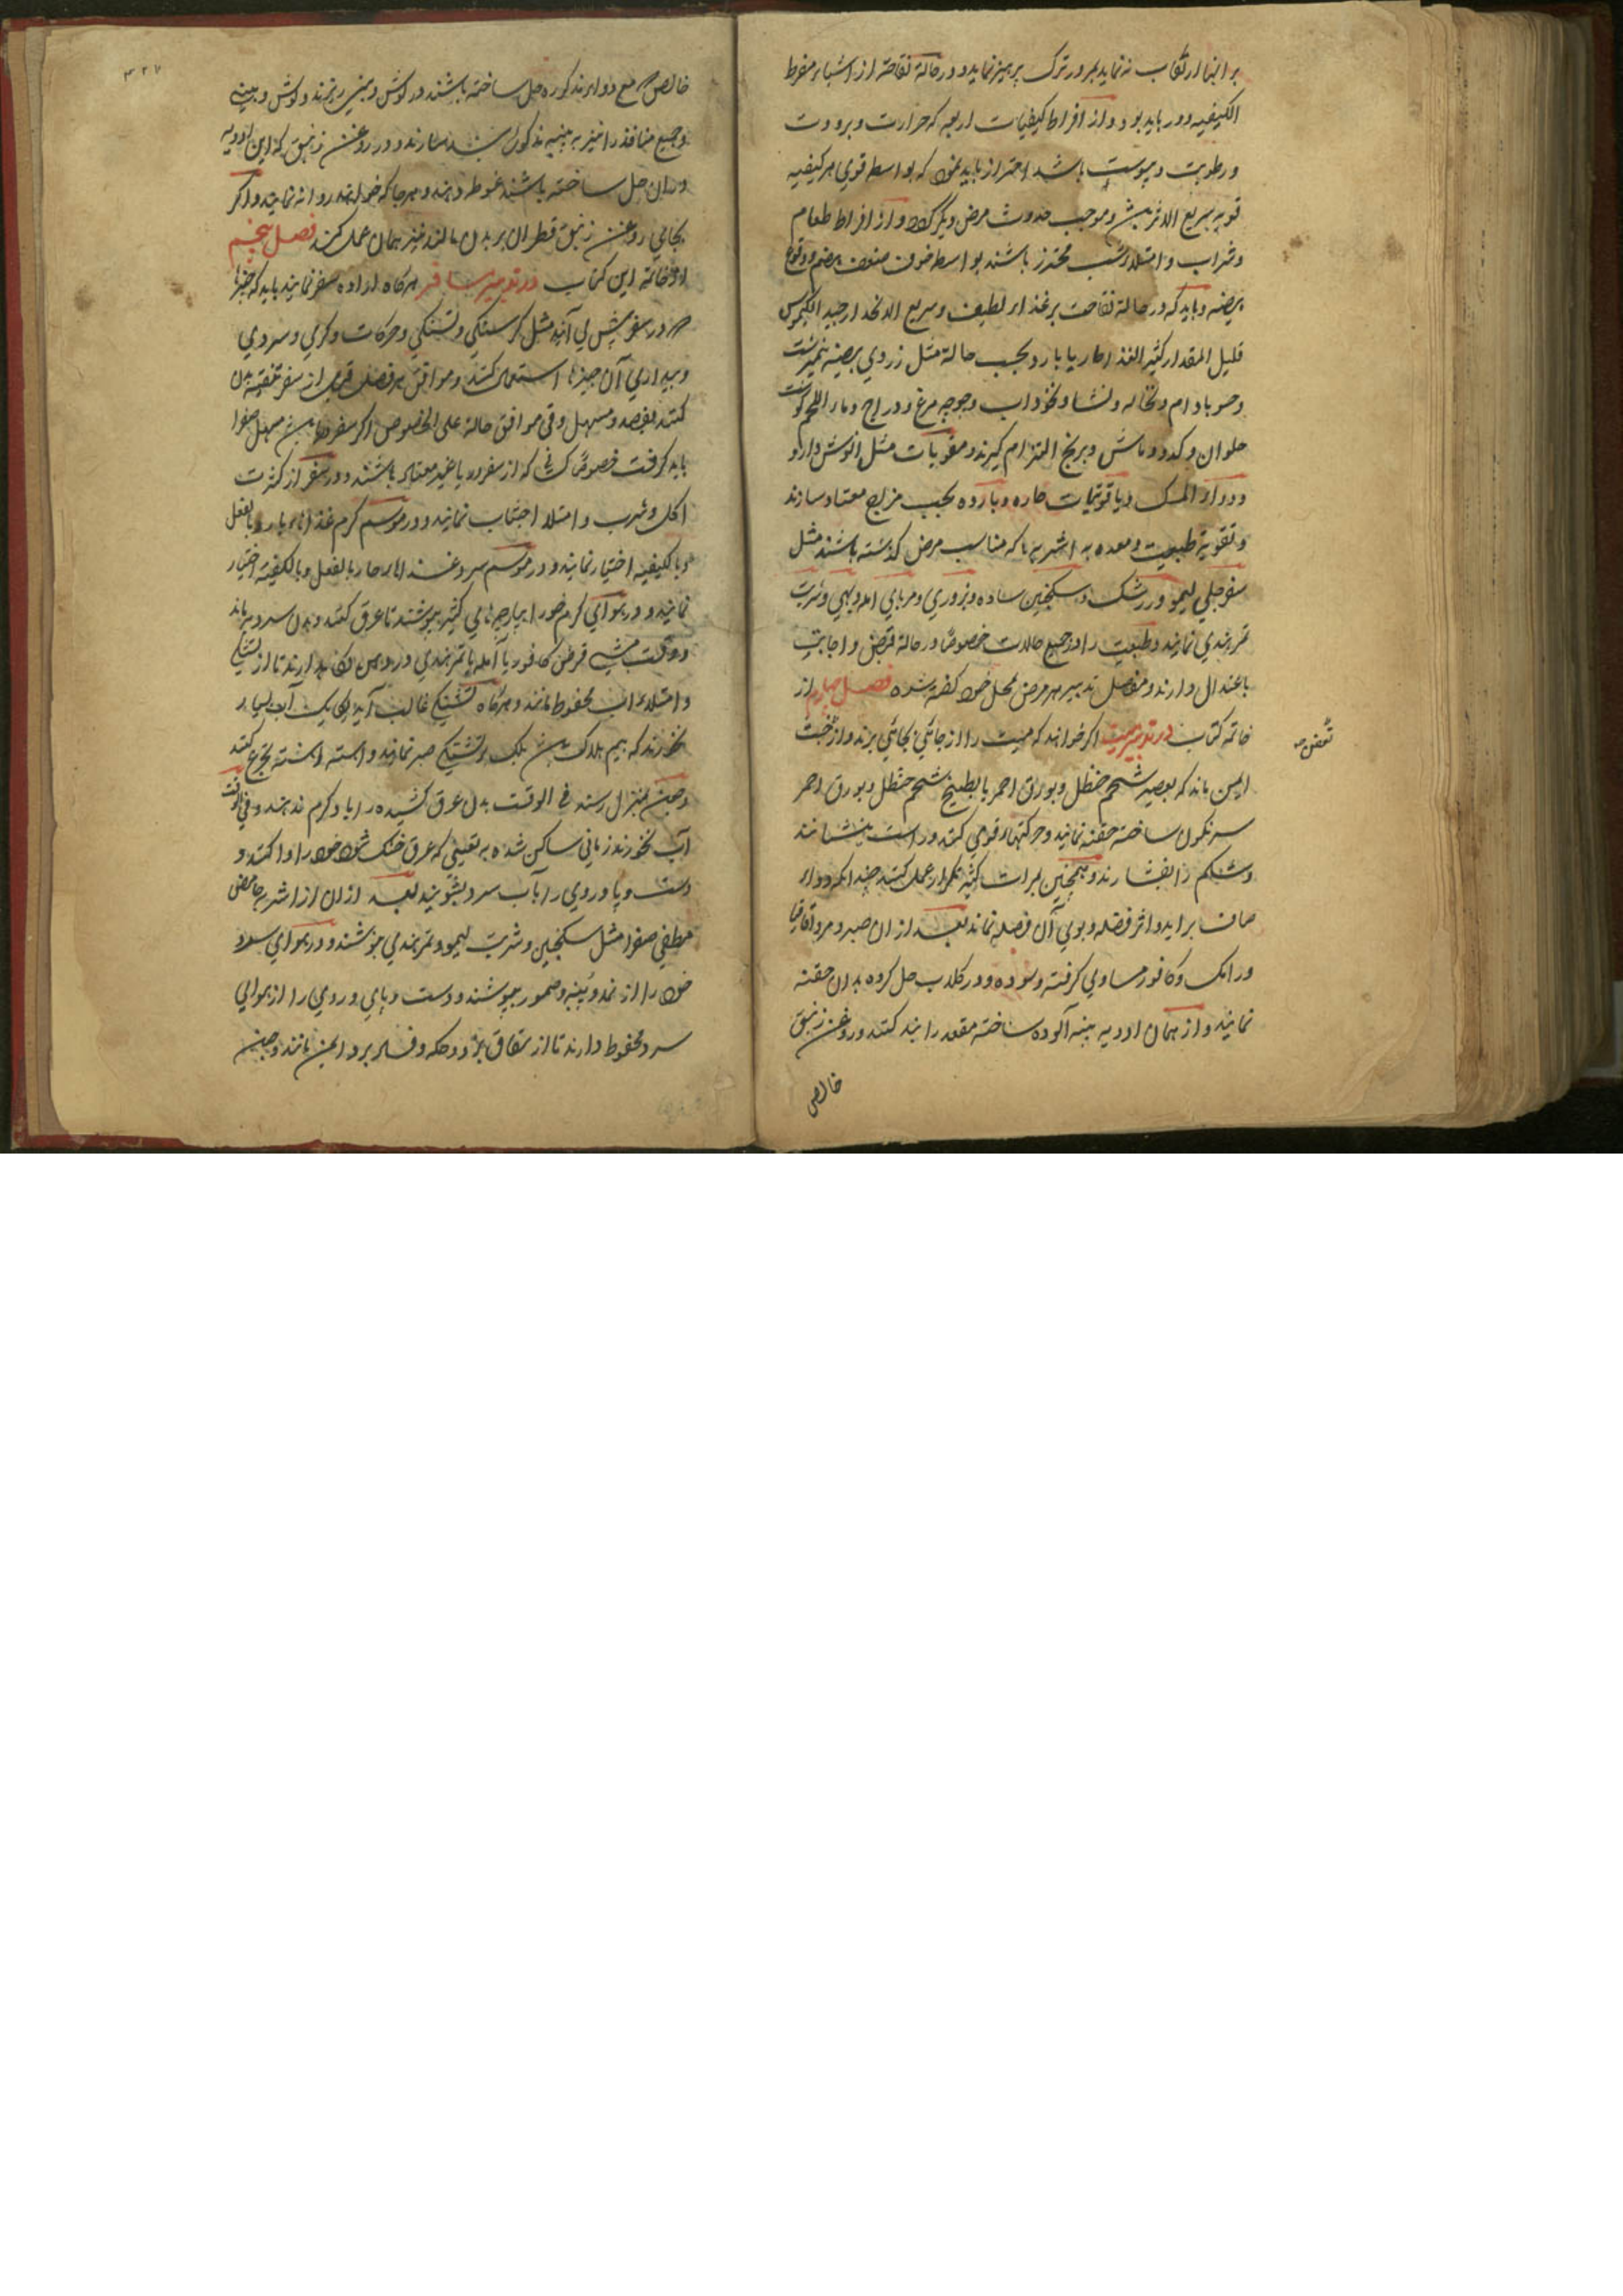 بر اینها ارتکاب نه نماید بلکه در ترک پرهیز نماید و در حالة نقاحته از اشیاء مفرط
الکیفیه دور باید بود و از افراط کیفیات اربعه که حرارت و برودت
و رطوبت و یبوست باشد احتراز باید نمود که بواسطه قوی هر کیفیه
قویه سریع الاثر میشود و موجب حدوث مرض دیگر کردد و از افراط طعام
و شراب و امتلاء شب محترز باشند بواسطه خوف ضعف هضم و وقوع
هیضه و باید که در حالة نقاحت بر غذاء لطیف و سریع الانحدار جید الکیموس
قلیل المقدار کثیر الغذاء حار یا بارد بحسب حالة مثل زردی بیضه نیمبرشت
و حسو بادام و نخاله و نشا و نخوداب و جوجه مرغ و دراج و ماء اللحم کوشت
حلوان و کدو و ماش و برنج التزام کیرند و مقویات مثل انوش دارو
و دواء المسک و یاقوتیات حاره و بارده بحسب مزاج معتاد سازند
و تقویة طبیعت و معده به اشربه ها که مناسب مرض کذشته باشند مثل
سفرجلی لیمو و زرشک و سکنجبین ساده و بزوری و مربای امله و بهی و شربت
تمر هندی نمایند و طبیعت را در جمیع حالات خصوصًا در حالة قبض و اجابت
باعتدال دارند و مفصل تدبیر هر مرض بمحل خود کفته شده فصل چهارم از
خاتمه کتاب در تدبیر میت اکر خواهند که میت را از جائی بجائی برند و از
ایمن ماند که بعصیر شحم حنظل و بورق احمر یا بطبیخ شحم حنظل و بورق احمر
سرنکون ساخته حقنه نمایند و حرکتهاء قوی کنند و راست بنشانند
و شکم را بفشارند و همچنین بمرات کثیره تکرار عمل کنند چندانکه دواء
صاف براید و اثر فضله و بوی آن فضله نماند بعد از ان صبر و مر و اقاقیا
و رامک و کافور مساوی کرفته و سوده و در کلاب حل کرده بدان حقنه
نمایند و از همان ادویه پنبه آلوده ساخته مقعد را بند کنند و روغن زنبق
خالص
تعفن صح
۴۲۷
خالص مع دواء مذکوره حل ساخته باشند در کوش و بینی ریزند و کوش و بینی
و جمیع منافذ را نیز به پنبه مذکور و در روغن زنبق که این ادویه
دران حل ساخته باشند غوطه دهند و هر جا که خواهند روانه نمایند و اکر
بجائی روغن زنبق قطران بر بدن مالند نیز همان عمل کند فصل پنجم
از خاتمه این کتاب در تدبیر مسافر هرکاه اراده سفر نمایند باید که چیزها
در سفر پیش می آید مثل کرسنکی و تشنکی و حرکات و کرمی و سردی
و بیداری آن چیزها استعمال کنند و موافق هر فصل قبل از سفر تنقیه بدن
کنند بفصد و مسهل و قی موافق حالة علی الخصوص اکر سفر مسهل صفرا
باید کرفت خصوصًا کسانی که از سفر دریا غیر معتاد باشند و در سفر از کثرت
اکل و شرب و امتلا اجتناب نمایند و در موسم کرم غذاهاء بارد بالفعل
و بالکیفیه اختیار نمایند و در موسم سرد غذاهاء حار بالفعل و بالکیفیه اختیار
نمایند و در هوای کرم خود را بپارچهای کثیر بپوشند تا عرق کنند و بدن سرد بماند
و وقت مشی قرص کافور یا آمله یا تمر هندی در دهن نکاه دارند تا از تشنکی
و امتلاء اب محفوظ مانند و هرکاه تشنکی غالب آید آب بسیار
نخورند که بیم هلاکت است بلکه بر تشنکی صبر نمایند و اهسته اهسته تجرع کنند
و چون بمنزل رسند فی الوقت بدن عرق کشیده را باد کرم ندهند و فی الوقت
آب نخورند زمانی ساکن شده به تعینی که عرق خشک شود خود را وا کنند و
دست و پا و روی را بآب سرد بشویند بعد از ان از اشربه حامض
مطفی صفرا مثل سکنجبین و شربت لیمو و تمر هندی نوشند و در هوای سرد
خود را از نمد و پنبه و سمور بپوشند و دست و پای و روی را از هوای
سرد محفوظ دارند تا از شقاق و حکه و فساد برد ایمن مانند و چون